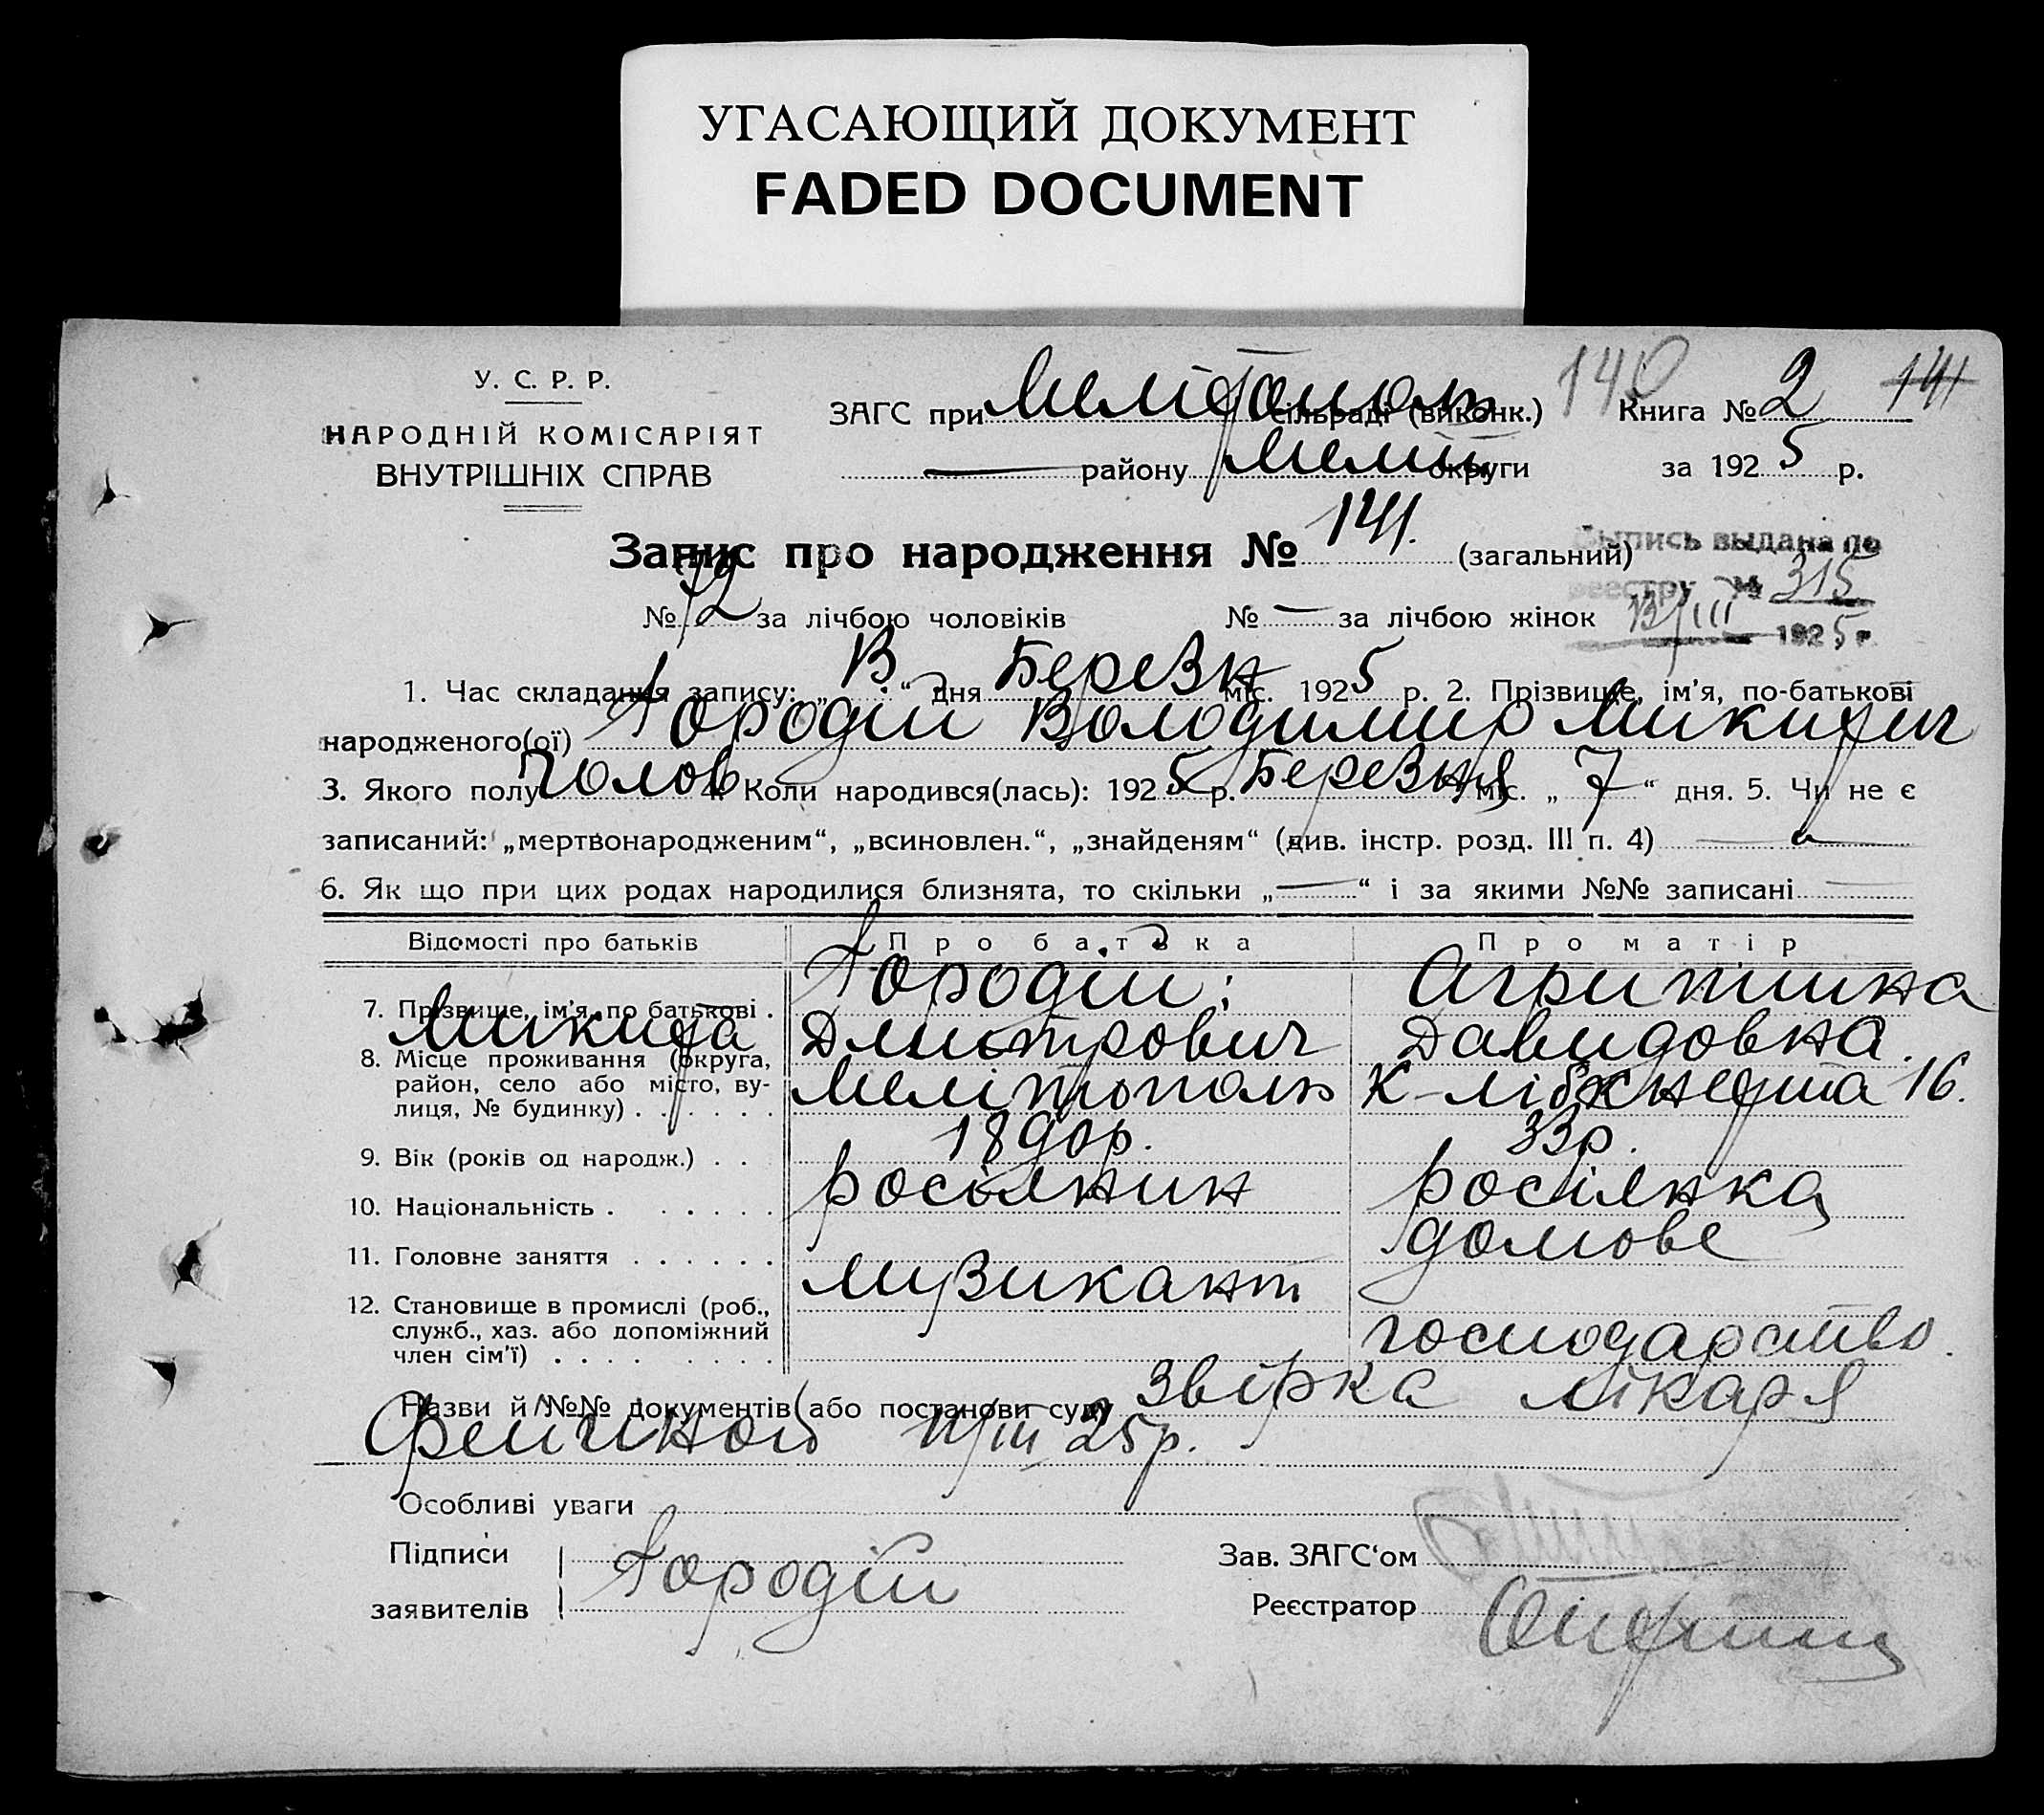 УГАСАЮЩИЙ ДОКУМЕНТ
FADED DOCUMENT
У. С. Р. Р.
НАРОДНІЙ КОМІСАРІЯТ
ВНУТРІШНІХ СПРАВ
ЗАГС при Мелітополь сільраді (виконк.) 140 Книга № 2 141
— району Меліт округи за 1925 р.
Запис про народження № 141. (загальний)
Выпись выдана по
реестру № 315
13/III 1925 г.
№ 72 за лічбою чоловіків № — за лічбою жінок
1. Час складання запису: „13“ дня Березн міс. 1925 р. 2. Прізвище, ім’я, по-батькові
народженого(ої) Городій Володимир Микитич
3. Якого полу чолов 4. Коли народився(лась): 1925 р. Березня міс. „7“ дня. 5. Чи не є
записаний: „мертвонародженим“, „всиновлен.“, „знайденям“ (див. інстр. розд. III п. 4) —
6. Як що при цих родах народилися близнята, то скільки „—“ і за якими №№ записані —
Відомості про батьків Про батька Про матір
7. Прізвище, ім’я, по батькові . Городій: Агрипина
Микита Дмитрович Давидовна.
8. Місце проживання (округа, район, село або місто, ву-
лиця, № будинку) . . . . . . Мелітополь К-лібкнехта 16.
9. Вік (років од народж.) . . 33р.
10. Національність . . . . . . росіянин росіянка
11. Головне заняття . . . . . . музикант домове
12. Становище в промислі (роб.,
служб., хаз. або допоміжний
член сім’ї) . . . . . . . . господарство.
Назви й №№ документів (або постанови суду) лікаря
III 25р.
Особливі уваги
Підписи Городій Зав. ЗАГС‘ом
заявителів Реєстратор